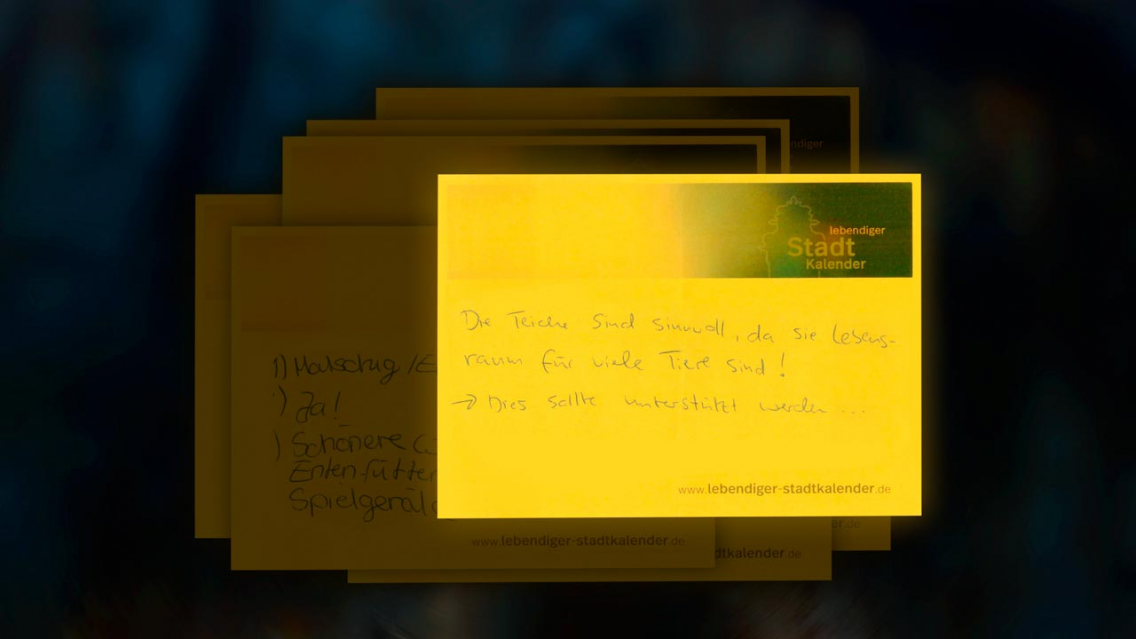 lebendiger
Stadt
Kalender
Die Teiche sind sinnvoll, da sie Lebens-
raum für viele Tiere sind!
→ Dies sollte unterstützt werden ...
www.lebendiger-stadtkalender.de
1)
) Ja!
) Schönere
Enten fütter
Spielgerät
www.lebendiger-stadtkalender.de
dtkalender.de